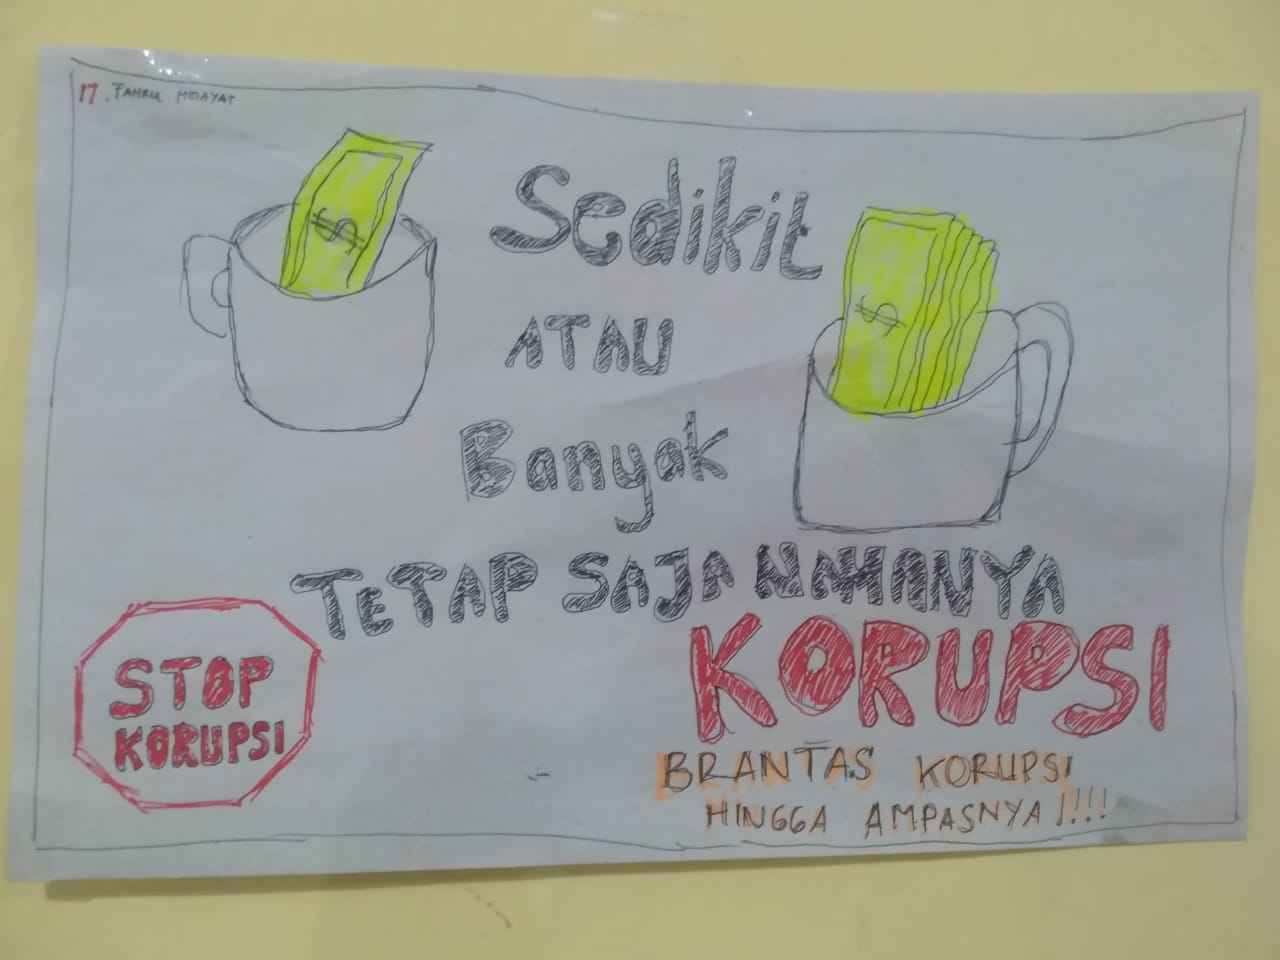 17. FAHRUL HIDAYAT
Sedikit
ATAU
Banyak
TETAP SAJA NAMANYA
KORUPSI
STOP
KORUPSI
BRANTAS KORUPSI
HINGGA AMPASNYA!!!!
$
$